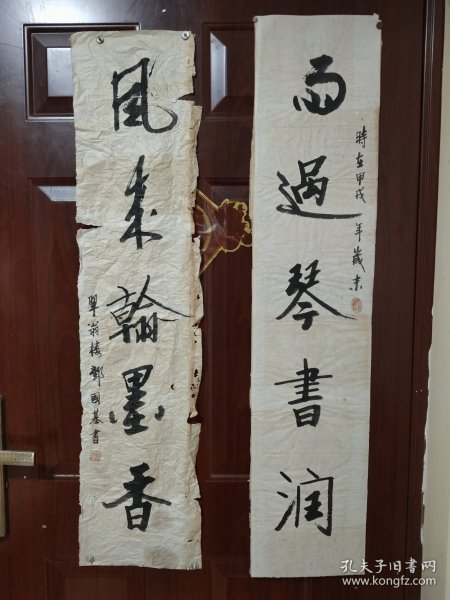 雨過琴書潤
時在甲戌年歲末
風來翰墨香
翠翁楼鄧國基書
孔夫子旧书网
www.kongfz.com